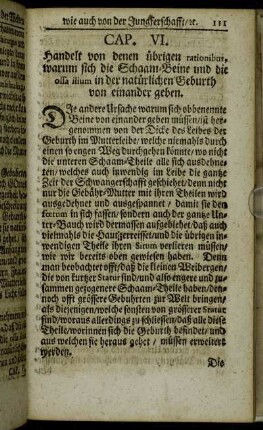 wie auch von der Jungferschafft/ꝛc. 111
CAP. VI.
Handelt von denen übrigen rationibus,
warum sich die Schaam-Beine und die
ossa ilium in der natürlichen Geburth
von einander geben.
Die andere Ursache warum sich obbenemte
Beine von einander geben müssen/ist her-
genommen von der Dicke des Leibes der
Geburth im Mutterleibe/welche niemahls durch
einen so engen Weg durchgehen könnte/wo nicht
die unteren Schaam-Theile alle sich ausdehne-
ten/welches auch inwendig im Leibe die gantze
Zeit der Schwangerschafft geschiehet/denn nicht
nur die Gebähr-Mutter mit ihren Theilen wird
ausgedehnet und ausgespannet/ damit sie den
fœtum in sich fassen/sondern auch der gantze Un-
ter-Bauch wird dermassen aufgebiehet/daß auch
vielmahls die Haut zerreisset/und die übrigen in-
wendigen Theile ihren Situm verlieren müssen/
wie wir bereits oben gewiesen haben. Denn
man beobachtet offt/daß die kleinen Weibergen/
die von kurtzer Statur sind/und also engere und zu-
sammen gezogenere Schaam-Theile haben/den-
noch offt grössere Gebuhrten zur Welt bringen/
als diejenigen/welche sonsten von grösserer Statur
sind/woraus allerdings zu schliessen/daß alle diese
Theile/worinnen sich die Geburth befindet/und
aus welchen sie heraus gehet/ müssen erweitert
werden.
Die